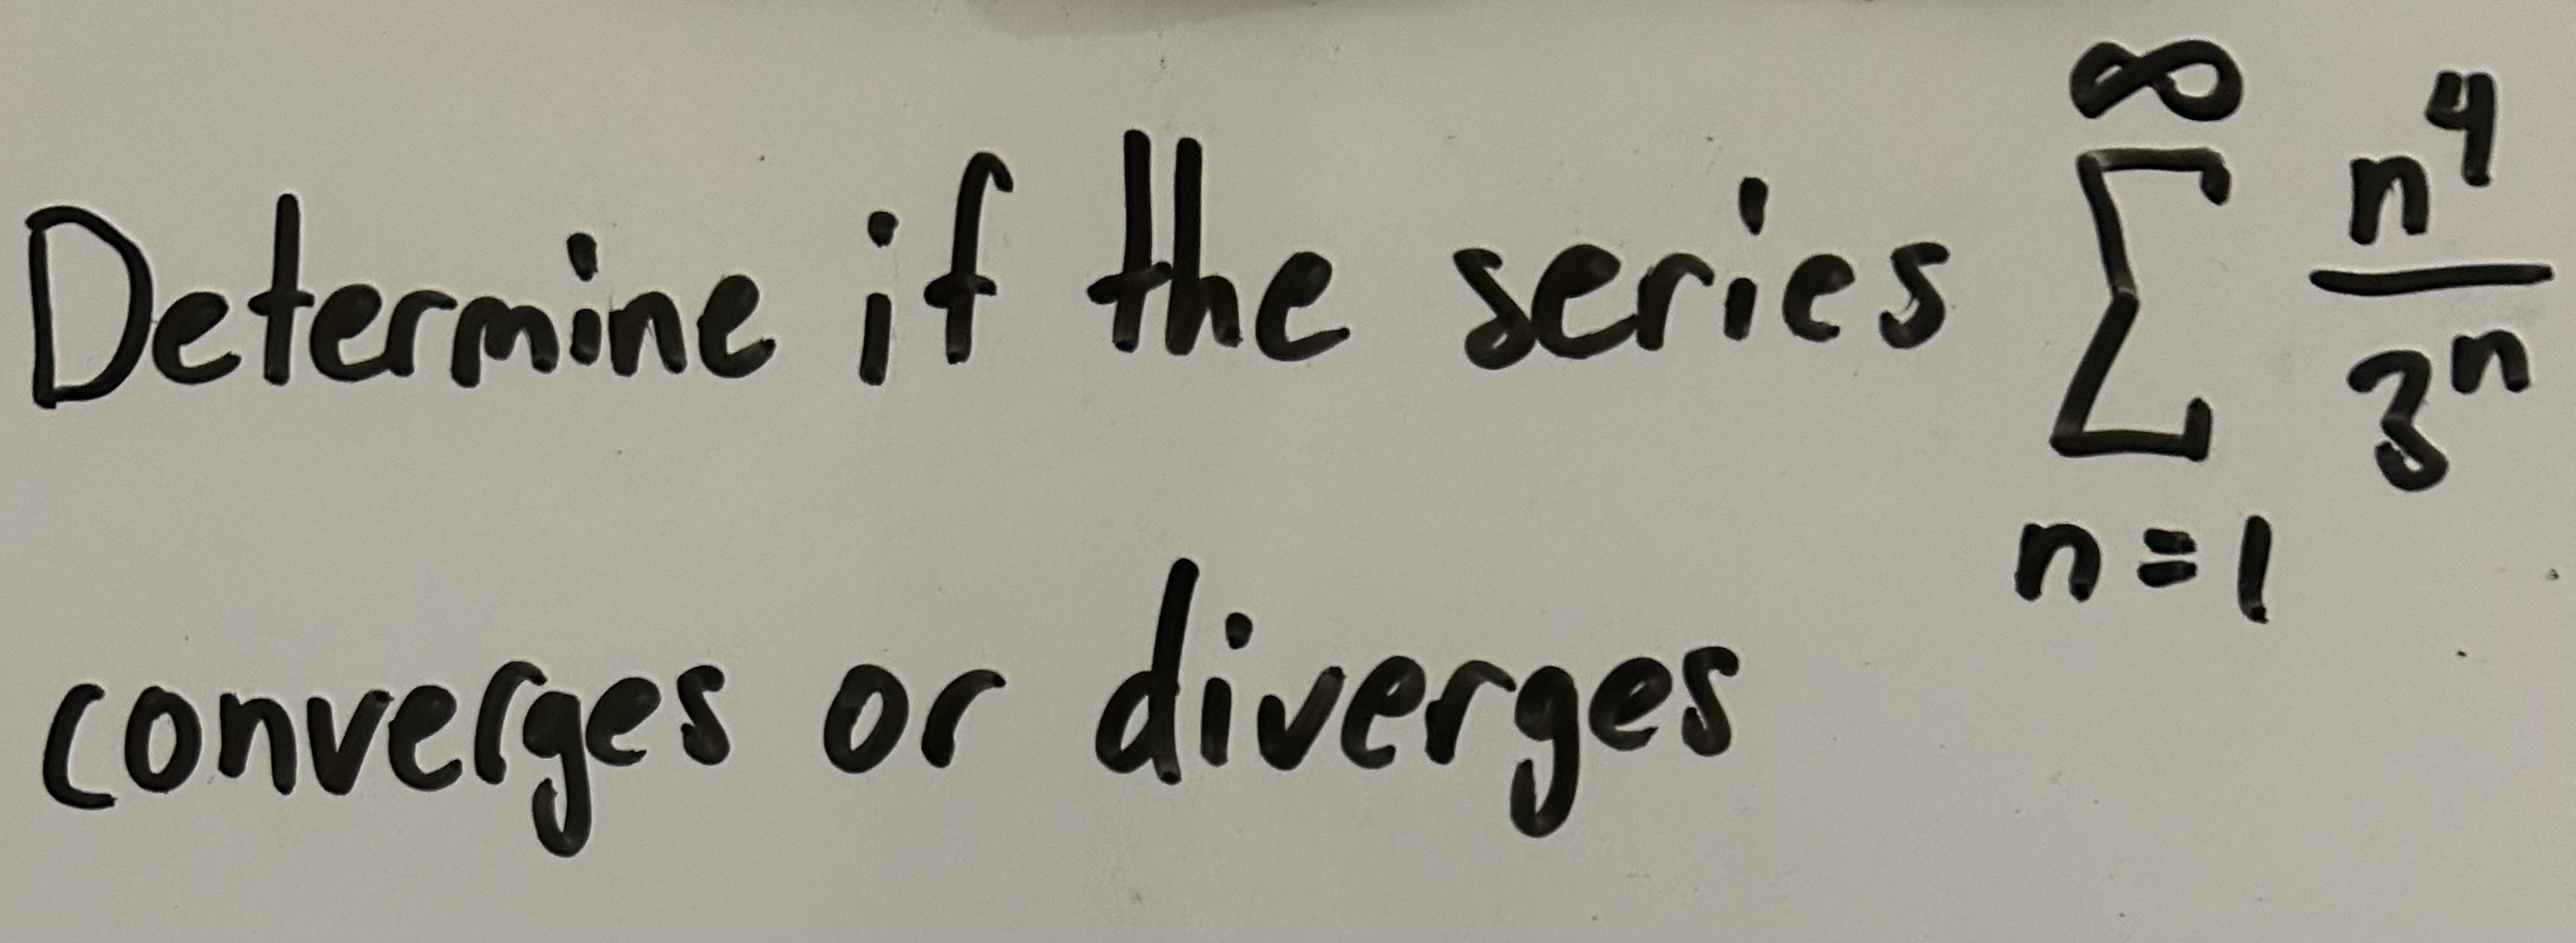 Determine if the series $\sum_{n=1}^{\infty} \frac{n^4}{3^n}$
converges or diverges